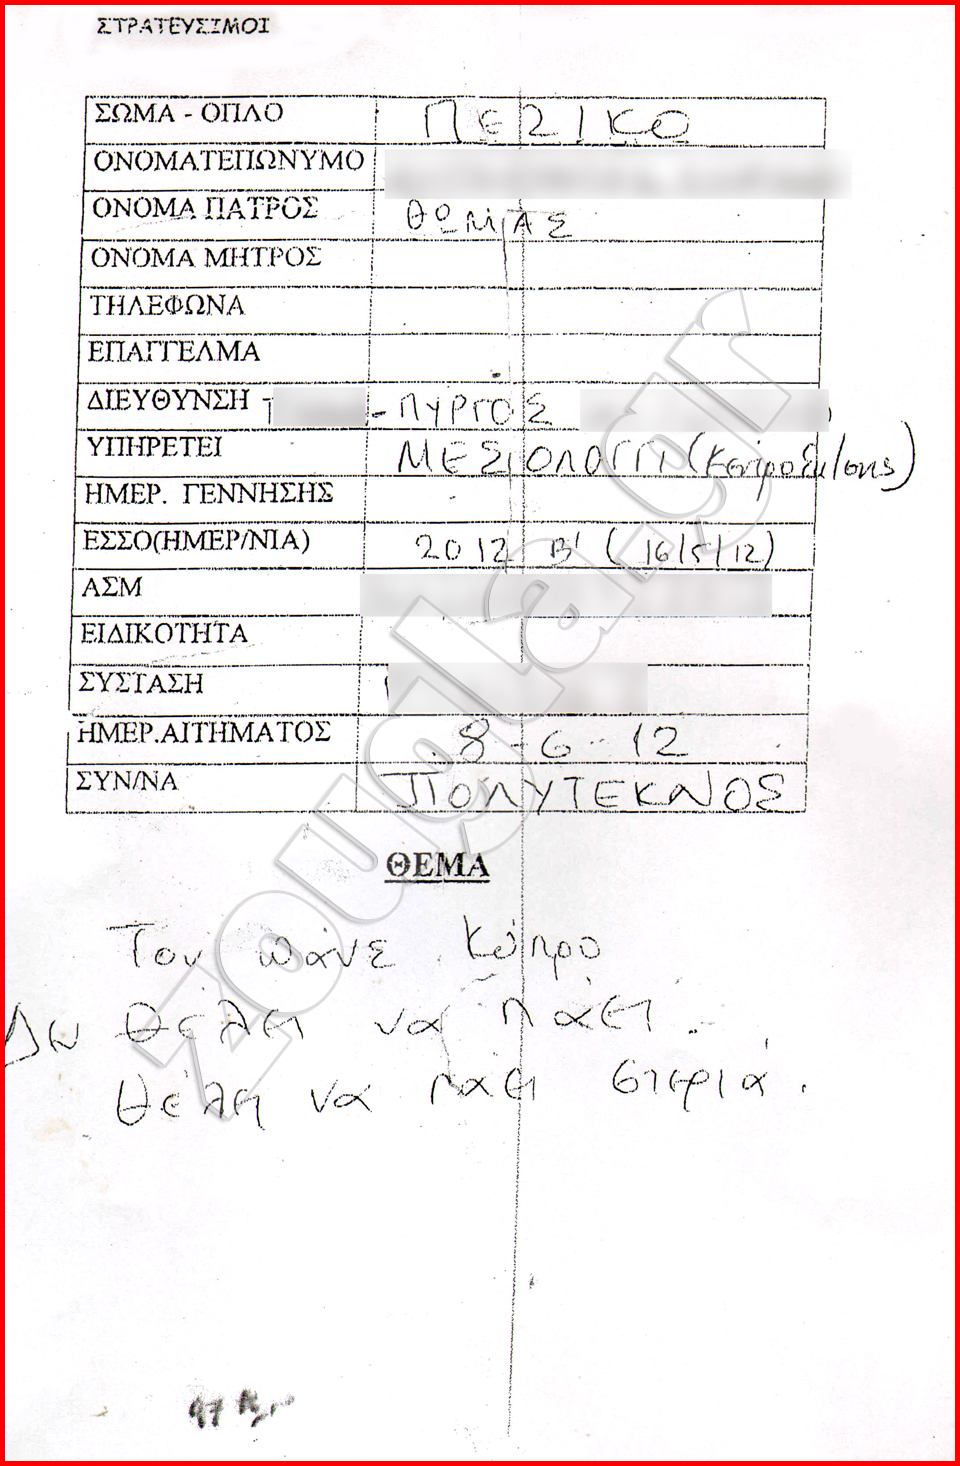 ΣΤΡΑΤΕΥΣΙΜΟΙ
ΣΩΜΑ - ΟΠΛΟ ΠΕΖΙΚΟ
ΟΝΟΜΑΤΕΠΩΝΥΜΟ
ΟΝΟΜΑ ΠΑΤΡΟΣ ΘΩΜΑΣ
ΟΝΟΜΑ ΜΗΤΡΟΣ
ΤΗΛΕΦΩΝΑ
ΕΠΑΓΓΕΛΜΑ
ΔΙΕΥΘΥΝΣΗ - ΠΥΡΓΟΣ
ΥΠΗΡΕΤΕΙ ΜΕΣΙΟΛΟΓΓΙ
ΗΜΕΡ. ΓΕΝΝΗΣΗΣ
ΕΣΣΟ(ΗΜΕΡ/ΝΙΑ) 2012 Β' (16/5/12)
ΑΣΜ
ΕΙΔΙΚΟΤΗΤΑ
ΣΥΣΤΑΣΗ
ΗΜΕΡ.ΑΙΤΗΜΑΤΟΣ 8-6-12
ΣΥΝ/ΝΑ ΠΟΛΥΤΕΚΝΟΣ
ΘΕΜΑ
Τον πάνε Κύπρο
Δεν θέλει να πάει.
θέλει να πάει στεριά.
zougla.gr